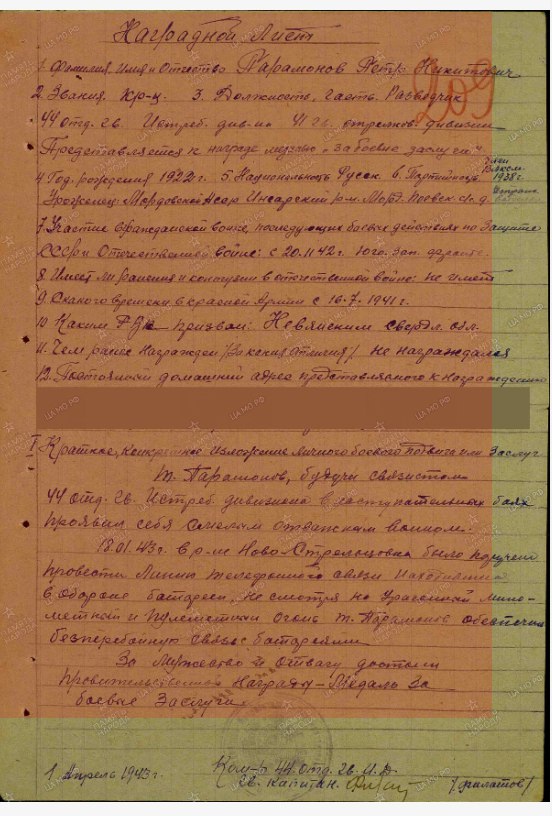 Наградной лист
1. Фамилия, Имя и Отчество Парамонов Петр Никитович
209
2. Звание Кр-ц. 3. Должность, часть. Разведчик
44 отд. гв. Истреб. див-на 41 гв. стрелков. дивизии
Представляется к награде медалью „За боевые заслуги"
4. Год рождения 1922 г. 5. Национальность Русск. 6. Партийность
член ВЛКСМ 1938 г.
Уроженец: Мордовской Асср Инсарский р-н.
7. Участие в гражданской войне, последующих боевых действиях по Защите
СССР и Отечественной войне: с 20.11.42 г. Юго. Зап. фронте.
8. Имеет ли ранения и контузии в отечественной войне: не имеет
9. С какого времени в красной Армии с 16.7.1941 г.
10. Каким РВК призван: Невянским свердл. обл.
11. Чем ранее награжден /За какие отличия/. не награждался
12. Постоянный домашний адрес представляемого к награждению
I Краткое, конкретное изложение личного боевого подвига или Заслуг
т. Парамонов, будучи связистом
44 отд. гв. Истреб. дивизиона в наступательных боях
проявил себя смелым отважным воином.
18.01.43 г. в р-не Ново-Стрельцовка было поручено
провести Линию телефонной связи находившейся
в обороне батареи, Не смотря на Ураганный мино-
метный и пулеметный огонь т. Парамонов обеспечил
безперебойную связь с батареями
За мужество и отвагу достоин
правительственной награды - Медаль За
боевые Заслуги.
1. Апрель 1943 г.
Ком-р 44 отд. гв. И.Д.
гв. капитан.
/Филатов/